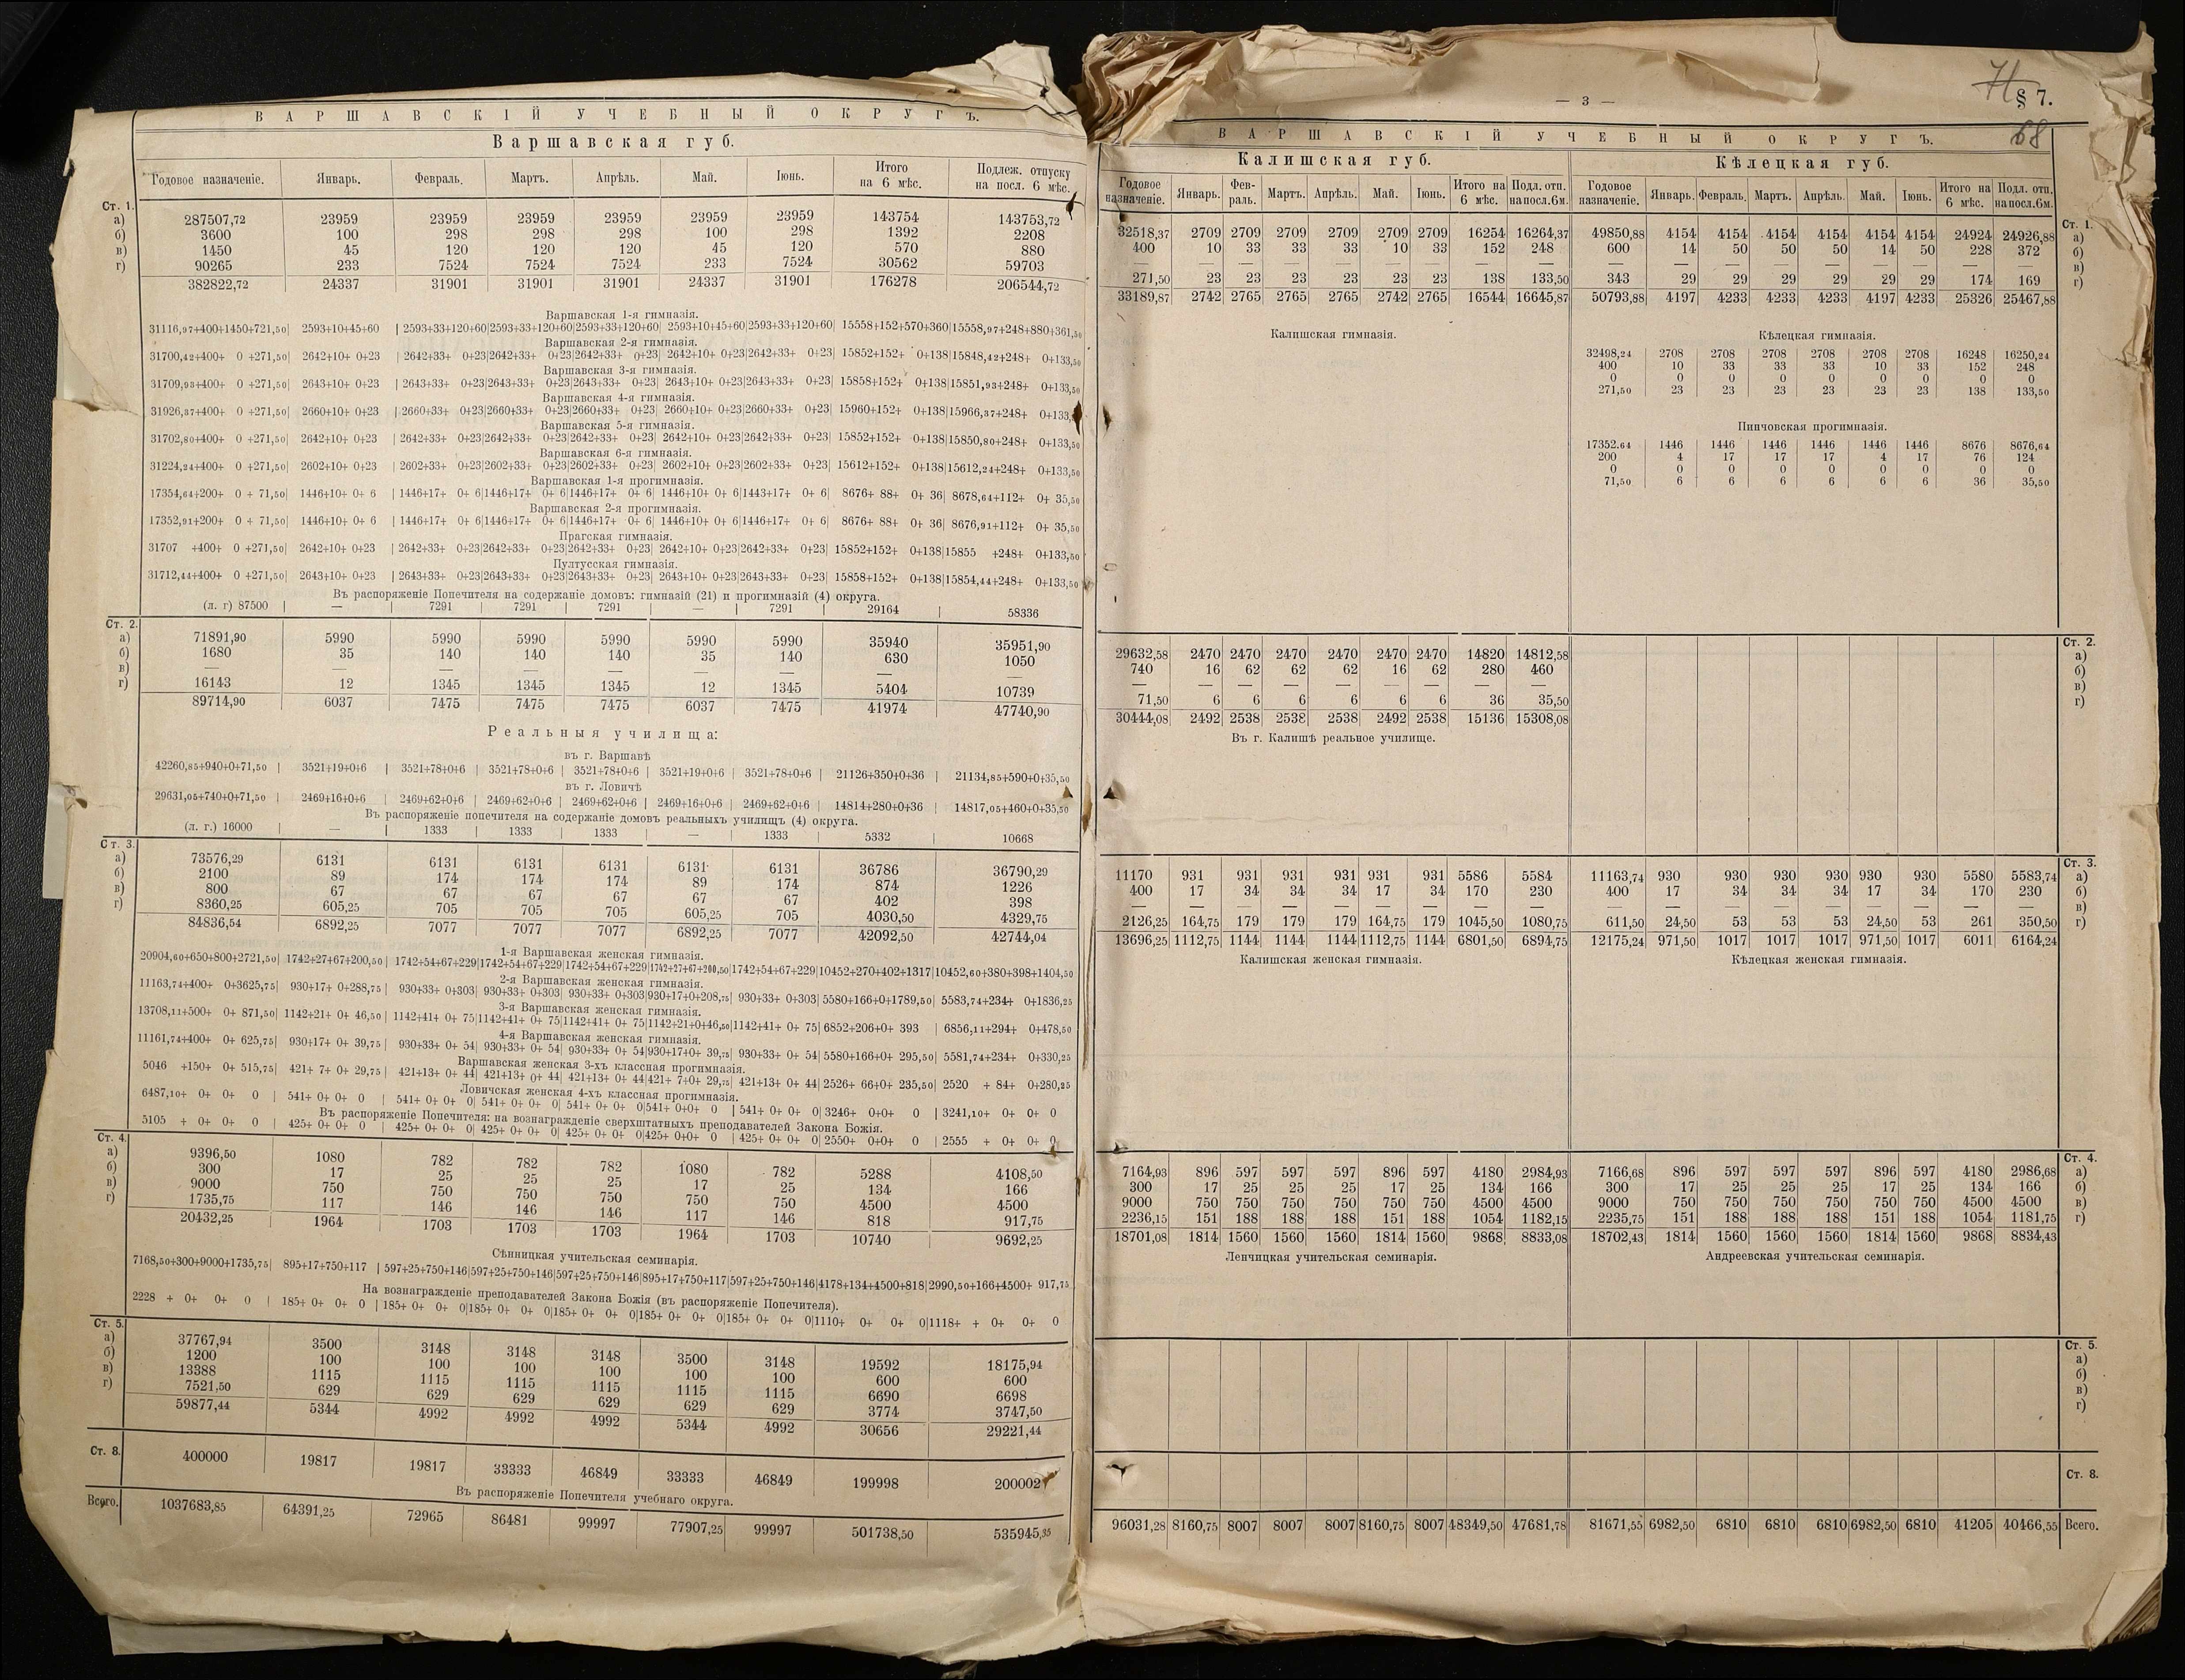 ВАРШАВСКІЙ УЧЕБНЫЙ ОКРУГЪ.
Варшавская губ.
Годовое назначеніе. Январь. Февраль. Мартъ. Апрѣль. Май. Іюнь. Итого на 6 мѣс. Подлеж. отпуску на посл. 6 мѣс.
Ст. 1.
а) 287507,72 23959 23959 23959 23959 23959 23959 143754 143753,72
б) 3600 100 298 298 298 100 298 1392 2208
в) 1450 45 120 120 120 45 120 570 880
г) 90265 233 7524 7524 7524 233 7524 30562 59703
382822,72 24337 31901 31901 31901 24337 31901 176278 206544,72
Варшавская 1-я гимназія.
31116,97+400+1450+721,50| 2593+10+45+60 | 2593+33+120+60|2593+33+120+60|2593+33+120+60| 2593+10+45+60|2593+33+120+60| 15558+152+570+360|15558,97+248+880+361,50
Варшавская 2-я гимназія.
31700,42+400+ 0 +271,50| 2642+10+ 0+23 | 2642+33+ 0+23|2642+33+ 0+23|2642+33+ 0+23| 2642+10+ 0+23|2642+33+ 0+23| 15852+152+ 0+138|15848,42+248+ 0+133,50
Варшавская 3-я гимназія.
31709,93+400+ 0 +271,50| 2643+10+ 0+23 | 2643+33+ 0+23|2643+33+ 0+23|2643+33+ 0+23| 2643+10+ 0+23|2643+33+ 0+23| 15858+152+ 0+138|15851,93+248+ 0+133,50
Варшавская 4-я гимназія.
31926,37+400+ 0 +271,50| 2660+10+ 0+23 | 2660+33+ 0+23|2660+33+ 0+23|2660+33+ 0+23| 2660+10+ 0+23|2660+33+ 0+23| 15960+152+ 0+138|15966,37+248+ 0+133,
Варшавская 5-я гимназія.
31702,80+400+ 0 +271,50| 2642+10+ 0+23 | 2642+33+ 0+23|2642+33+ 0+23|2642+33+ 0+23| 2642+10+ 0+23|2642+33+ 0+23| 15852+152+ 0+138|15850,80+248+ 0+133,50
Варшавская 6-я гимназія.
31224,24+400+ 0 +271,50| 2602+10+ 0+23 | 2602+33+ 0+23|2602+33+ 0+23|2602+33+ 0+23| 2602+10+ 0+23|2602+33+ 0+23| 15612+152+ 0+138|15612,24+248+ 0+133,50
Варшавская 1-я прогимназія.
17354,64+200+ 0 + 71,50| 1446+10+ 0+ 6 | 1446+17+ 0+ 6|1446+17+ 0+ 6|1446+17+ 0+ 6| 1446+10+ 0+ 6|1443+17+ 0+ 6| 8676+ 88+ 0+ 36| 8678,64+112+ 0+ 35,50
Варшавская 2-я прогимназія.
17352,91+200+ 0 + 71,50| 1446+10+ 0+ 6 | 1446+17+ 0+ 6|1446+17+ 0+ 6|1446+17+ 0+ 6| 1446+10+ 0+ 6|1446+17+ 0+ 6| 8676+ 88+ 0+ 36| 8676,91+112+ 0+ 35,50
Прагская гимназія.
31707 +400+ 0 +271,50| 2642+10+ 0+23 | 2642+33+ 0+23|2642+33+ 0+23|2642+33+ 0+23| 2642+10+ 0+23|2642+33+ 0+23| 15852+152+ 0+138|15855 +248+ 0+133,50
Пултусская гимназія.
31712,44+400+ 0 +271,50| 2643+10+ 0+23 | 2643+33+ 0+23|2643+33+ 0+23|2643+33+ 0+23| 2643+10+ 0+23|2643+33+ 0+23| 15858+152+ 0+138|15854,44+248+ 0+133,50
Въ распоряженіе Попечителя на содержаніе домовъ: гимназій (21) и прогимназій (4) округа.
(л. г) 87500 | — | 7291 | 7291 | 7291 | — | 7291 | 29164 | 58336
Ст. 2.
а) 71891,90 5990 5990 5990 5990 5990 5990 35940 35951,90
б) 1680 35 140 140 140 35 140 630 1050
в) — — — — — — — — —
г) 16143 12 1345 1345 1345 12 1345 5404 10739
89714,90 6037 7475 7475 7475 6037 7475 41974 47740,90
Реальныя училища:
въ г. Варшавѣ
42260,85+940+0+71,50 | 3521+19+0+6 | 3521+78+0+6 | 3521+78+0+6 | 3521+78+0+6 | 3521+19+0+6 | 3521+78+0+6 | 21126+350+0+36 | 21134,85+590+0+35,50
въ г. Ловичѣ
29631,05+740+0+71,50 | 2469+16+0+6 | 2469+62+0+6 | 2469+62+0+6 | 2469+62+0+6 | 2469+16+0+6 | 2469+62+0+6 | 14814+280+0+36 | 14817,05+460+0+35,50
Въ распоряженіе попечителя на содержаніе домовъ реальныхъ училищъ (4) округа.
(л. г.) 16000 | — | 1333 | 1333 | 1333 | — | 1333 | 5332 | 10668
Ст. 3.
а) 73576,29 6131 6131 6131 6131 6131 6131 36786 36790,29
б) 2100 89 174 174 174 89 174 874 1226
в) 800 67 67 67 67 67 67 402 398
г) 8360,25 605,25 705 705 705 605,25 705 4030,50 4329,75
84836,54 6892,25 7077 7077 7077 6892,25 7077 42092,50 42744,04
1-я Варшавская женская гимназія.
20904,60+650+800+2721,50| 1742+27+67+200,50| 1742+54+67+229|1742+54+67+229|1742+54+67+229|1742+27+67+200,50|1742+54+67+229|10452+270+402+1317|10452,60+380+398+1404,50
2-я Варшавская женская гимназія.
11163,74+400+ 0+3625,75| 930+17+ 0+288,75| 930+33+ 0+303| 930+33+ 0+303| 930+33+ 0+303|930+17+0+208,75| 930+33+ 0+303| 5580+166+0+1789,50| 5583,74+234+ 0+1836,25
3-я Варшавская женская гимназія.
13708,11+500+ 0+ 871,50| 1142+21+ 0+ 46,50| 1142+41+ 0+ 75|1142+41+ 0+ 75|1142+41+ 0+ 75|1142+21+0+46,50|1142+41+ 0+ 75| 6852+206+0+ 393 | 6856,11+294+ 0+478,50
4-я Варшавская женская гимназія.
11161,74+400+ 0+ 625,75| 930+17+ 0+ 39,75| 930+33+ 0+ 54| 930+33+ 0+ 54| 930+33+ 0+ 54|930+17+0+ 39,75| 930+33+ 0+ 54| 5580+166+0+ 295,50| 5581,74+234+ 0+330,25
Варшавская женская 3-хъ классная прогимназія.
5046 +150+ 0+ 515,75| 421+ 7+ 0+ 29,75| 421+13+ 0+ 44| 421+13+ 0+ 44| 421+13+ 0+ 44|421+ 7+0+ 29,75| 421+13+ 0+ 44| 2526+ 66+0+ 235,50| 2520 + 84+ 0+280,25
Ловичская женская 4-хъ классная прогимназія.
6487,10+ 0+ 0+ 0 | 541+ 0+ 0+ 0 | 541+ 0+ 0+ 0| 541+ 0+ 0+ 0| 541+ 0+ 0+ 0|541+ 0+0+ 0 | 541+ 0+ 0+ 0| 3246+ 0+0+ 0 | 3241,10+ 0+ 0+ 0
Въ распоряженіе Попечителя: на вознагражденіе сверхштатныхъ преподавателей Закона Божія.
5105 + 0+ 0+ 0 | 425+ 0+ 0+ 0 | 425+ 0+ 0+ 0| 425+ 0+ 0+ 0| 425+ 0+ 0+ 0|425+ 0+0+ 0 | 425+ 0+ 0+ 0| 2550+ 0+0+ 0 | 2555 + 0+ 0+ 0
Ст. 4.
а) 9396,50 1080 782 782 782 1080 782 5288 4108,50
б) 300 17 25 25 25 17 25 134 166
в) 9000 750 750 750 750 750 750 4500 4500
г) 1735,75 117 146 146 146 117 146 818 917,75
20432,25 1964 1703 1703 1703 1964 1703 10740 9692,25
Сѣнницкая учительская семинарія.
7168,50+300+9000+1735,75| 895+17+750+117 | 597+25+750+146|597+25+750+146|597+25+750+146|895+17+750+117|597+25+750+146|4178+134+4500+818|2990,50+166+4500+ 917,75
На вознагражденіе преподавателей Закона Божія (въ распоряженіе Попечителя).
2228 + 0+ 0+ 0 | 185+ 0+ 0+ 0 | 185+ 0+ 0+ 0|185+ 0+ 0+ 0|185+ 0+ 0+ 0|185+ 0+ 0+ 0|185+ 0+ 0+ 0|1110+ 0+ 0+ 0|1118+ + 0+ 0+ 0
Ст. 5.
а) 37767,94 3500 3148 3148 3148 3500 3148 19592 18175,94
б) 1200 100 100 100 100 100 100 600 600
в) 13388 1115 1115 1115 1115 1115 1115 6690 6698
г) 7521,50 629 629 629 629 629 629 3774 3747,50
59877,44 5344 4992 4992 4992 5344 4992 30656 29221,44
Ст. 8. 400000 19817 19817 33333 46849 33333 46849 199998 200002
Въ распоряженіе Попечителя учебнаго округа.
Всего. 1037683,85 64391,25 72965 86481 99997 77907,25 99997 501738,50 535945,35
— 3 —
71
§ 7.
68
ВАРШАВСКІЙ УЧЕБНЫЙ ОКРУГЪ.
Калишская губ. Кѣлецкая губ.
Годовое назначеніе. Январь. Фев-раль. Мартъ. Апрѣль. Май. Іюнь. Итого на 6 мѣс. Подл. отп. на посл. 6 м. Годовое назначеніе. Январь. Февраль. Мартъ. Апрѣль. Май. Іюнь. Итого на 6 мѣс. Подл. отп. на посл. 6 м.
Ст. 1.
32518,37 2709 2709 2709 2709 2709 2709 16254 16264,37 49850,88 4154 4154 4154 4154 4154 4154 24924 24926,88 а)
400 10 33 33 33 10 33 152 248 600 14 50 50 50 14 50 228 372 б)
— — — — — — — — — — — — — — — — — — в)
271,50 23 23 23 23 23 23 138 133,50 343 29 29 29 29 29 29 174 169 г)
33189,87 2742 2765 2765 2765 2742 2765 16544 16645,87 50793,88 4197 4233 4233 4233 4197 4233 25326 25467,88
Калишская гимназія. Кѣлецкая гимназія.
32498,24 2708 2708 2708 2708 2708 2708 16248 16250,24
400 10 33 33 33 10 33 152 248
0 0 0 0 0 0 0 0 0
271,50 23 23 23 23 23 23 138 133,50
Пинчовская прогимназія.
17352.64 1446 1446 1446 1446 1446 1446 8676 8676,64
200 4 17 17 17 4 17 76 124
0 0 0 0 0 0 0 0 0
71,50 6 6 6 6 6 6 36 35,50
Ст. 2.
29632,58 2470 2470 2470 2470 2470 2470 14820 14812,58 а)
740 16 62 62 62 16 62 280 460 б)
— — — — — — — — — в)
71,50 6 6 6 6 6 6 36 35,50 г)
30444,08 2492 2538 2538 2538 2492 2538 15136 15308,08
Въ г. Калишѣ реальное училище.
Ст. 3.
11170 931 931 931 931 931 931 5586 5584 11163,74 930 930 930 930 930 930 5580 5583,74 а)
400 17 34 34 34 17 34 170 230 400 17 34 34 34 17 34 170 230 б)
— — — — — — — — — — — — — — — — — — в)
2126,25 164,75 179 179 179 164,75 179 1045,50 1080,75 611,50 24,50 53 53 53 24,50 53 261 350,50 г)
13696,25 1112,75 1144 1144 1144 1112,75 1144 6801,50 6894,75 12175,24 971,50 1017 1017 1017 971,50 1017 6011 6164,24
Калишская женская гимназія. Кѣлецкая женская гимназія.
Ст. 4.
7164,93 896 597 597 597 896 597 4180 2984,93 7166,68 896 597 597 597 896 597 4180 2986,68 а)
300 17 25 25 25 17 25 134 166 300 17 25 25 25 17 25 134 166 б)
9000 750 750 750 750 750 750 4500 4500 9000 750 750 750 750 750 750 4500 4500 в)
2236,15 151 188 188 188 151 188 1054 1182,15 2235,75 151 188 188 188 151 188 1054 1181,75 г)
18701,08 1814 1560 1560 1560 1814 1560 9868 8833,08 18702,43 1814 1560 1560 1560 1814 1560 9868 8834,43
Ленчицкая учительская семинарія. Андреевская учительская семинарія.
Ст. 5.
а)
б)
в)
г)
Ст. 8.
96031,28 8160,75 8007 8007 8007 8160,75 8007 48349,50 47681,78 81671,55 6982,50 6810 6810 6810 6982,50 6810 41205 40466,55 Всего.